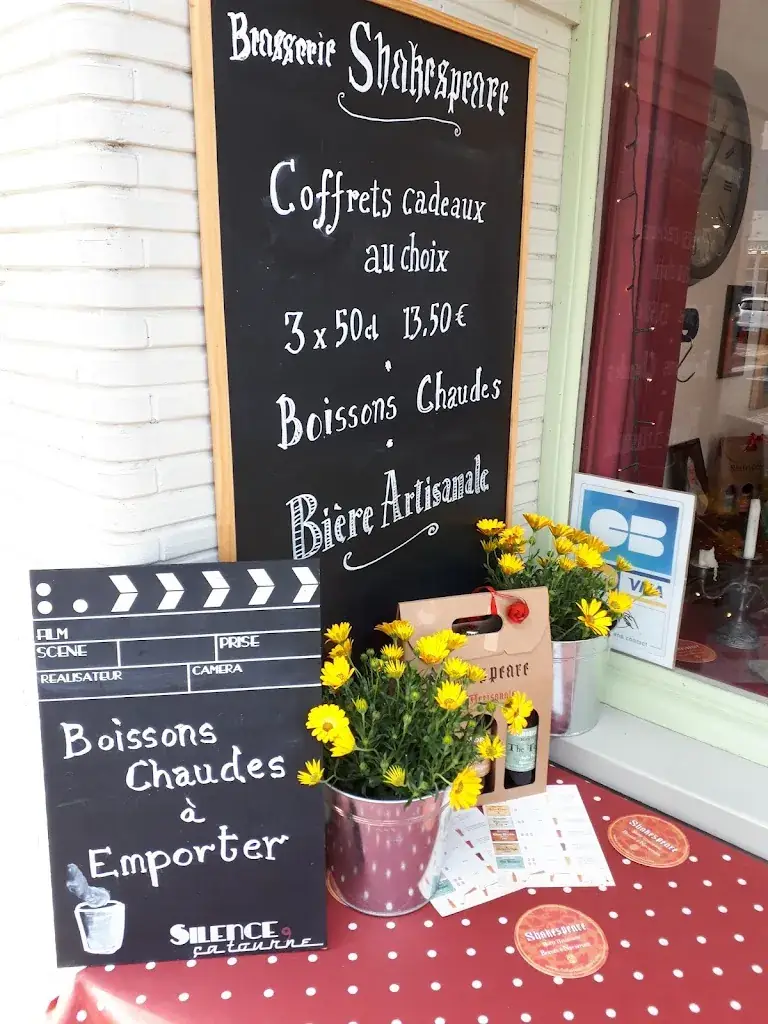 Brasserie Shakespeare
Coffrets cadeaux
au choix
3 x 50cl 13,50 €
Boissons Chaudes
Bière Artisanale
CB
VISA
FILM
SCENE
PRISE
REALISATEUR
CAMERA
Boissons
Chaudes
à
Emporter
SILENCE
ça tourne
speare
Artisanale
The T
Shakespeare
Shakespeare